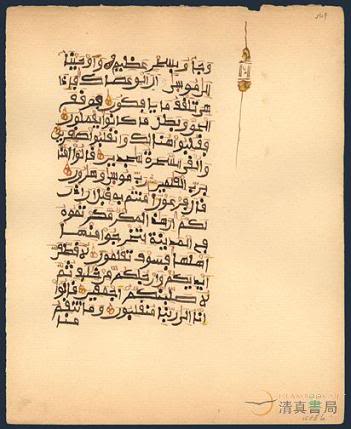 وجاو بسحر عظيم واوحينا
الى موسى ان الق عصاك فاذا
هي تلقف ما يافكون فوقع
الحق وبطل ما كانوا يعملون
فغلبوا هنالك وانقلبوا صغرين
والقي السحرة سجدين قالوا امنا
برب العلمين رب موسى وهرون
قال فرعون امنتم به قبل ان اذن
لكم ان هذا لمكر مكرتموه
في المدينة لتخرجوا منها
اهلها فسوف تعلمون لاقطعن
ايديكم وارجلكم من خلف ثم
لاصلبنكم اجمعين قالوا
انا الى ربنا منقلبون وما تنقم
منا
清真書局